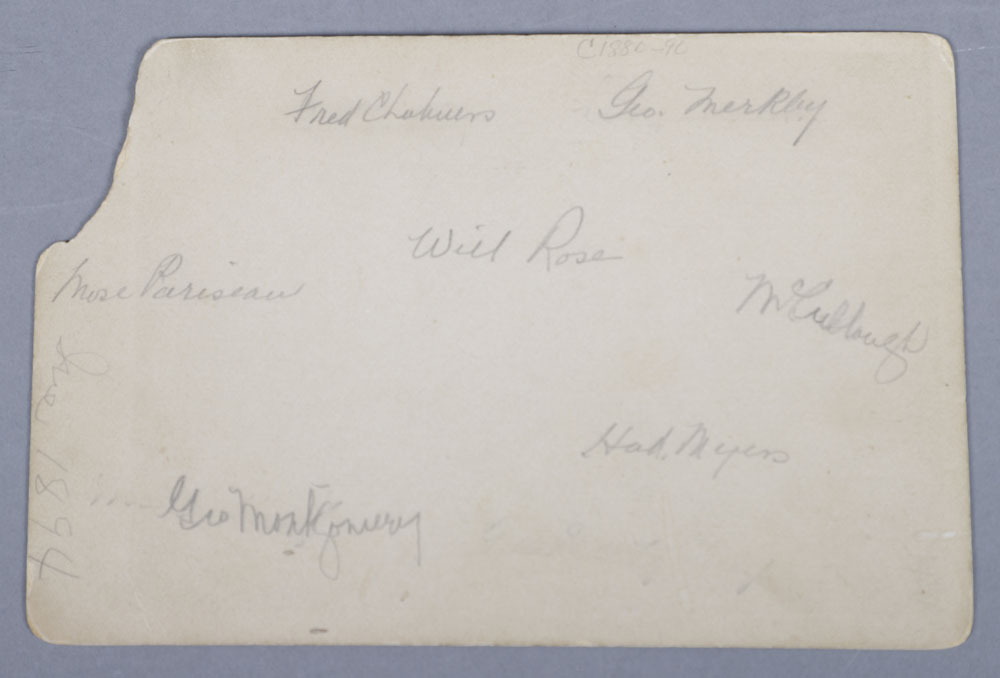 C1880-90
Fred Chalmers
Geo. Merkley
Will Rose
Mose Pariseau
McCullough
Had. Myers
Geo Montgomery
1894